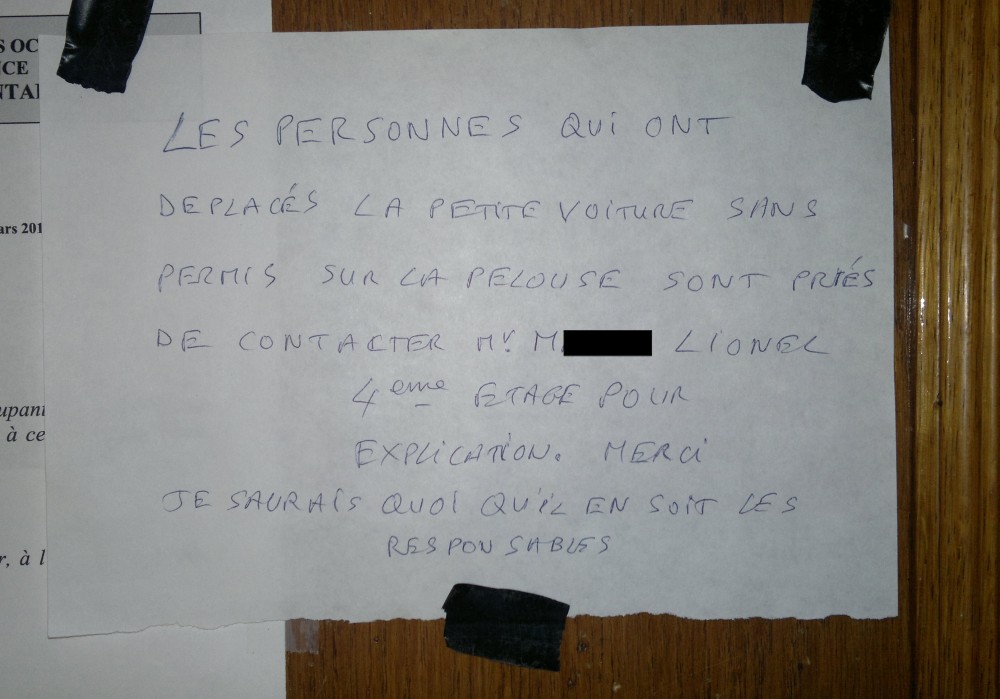 S OC
CE
NTAI
ars 201
upant
à ce
r, à l
LES PERSONNES QUI ONT
DEPLACÉS LA PETITE VOITURE SANS
PERMIS SUR LA PELOUSE SONT PRIÉS
DE CONTACTER Mr. M LIONEL
4eme ETAGE POUR
EXPLICATION. MERCI
JE SAURAIS QUOI QU'IL EN SOIT LES
RESPONSABLES